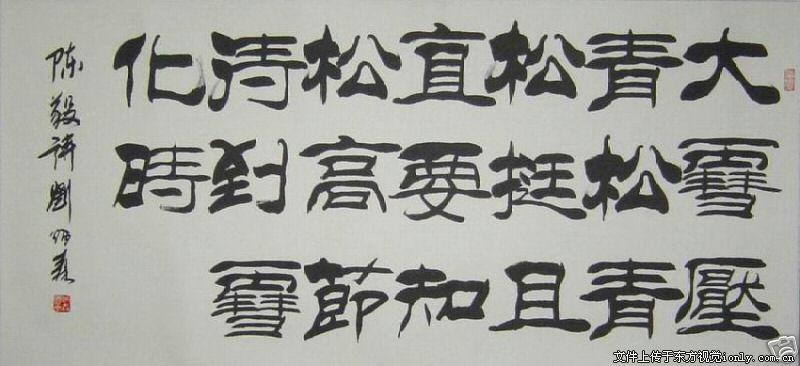 大雪壓
青松青
松挺且
直要知
松高節
待到雪
化時
陈毅诗劉炳森
文件上传于东方视觉ionly.com.cn